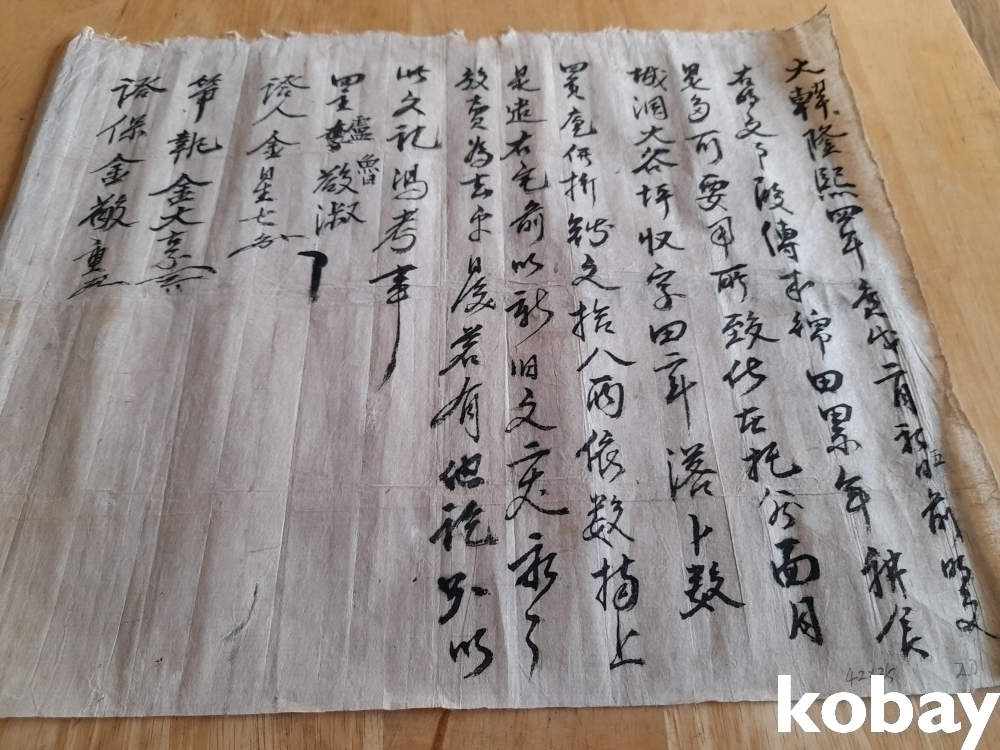 大韓隆熙四年庚戌二月初五日前明文
右明文事段傳來綿田累年耕食
是多可要用所致伏在托谷面月
城洞大谷坪收字田二斗落卜数
買壹価折錢文拾八両依数捧上
是遣右宅前以新旧文二丈永々
放賣為去乎日後若有他説則以
此文記馮考事
田主盧敬淑
魯
證人金星七
筆執金大
證保金敬重
42×35
kobay